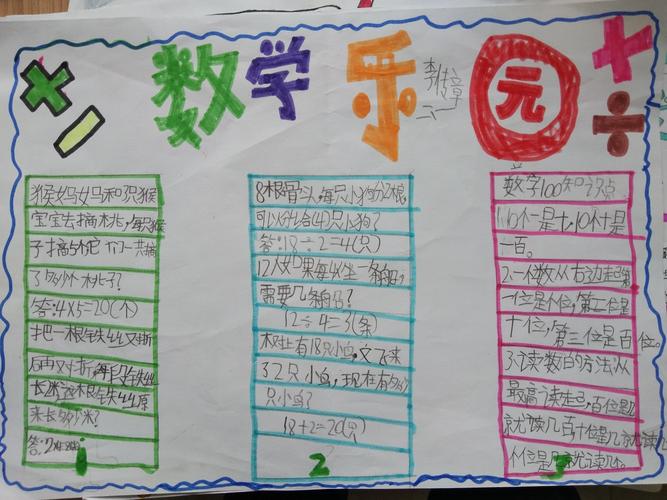 数学乐元
李传章
二一
猴妈妈和3只猴
宝宝去摘桃,每只猴
子摘5个它们一共摘
了多少个桃子?
答:4×5=20(个)
把一根铁丝对折
后再对折,每段铁丝
长米这根铁丝原
来长多少米?
答:
1
8根骨头,每只小狗分2根,
可以分给(4)只小狗?
答:18÷2=4(只)
12人如果每4人坐一条船,
需要几条船?
12÷4=3(条)
树上有18只小鸟,又飞来
32只小鸟,现在有多少
只小鸟?
18+2=20(只)
2
数字100知识点
1.10个一是十,10个十是
一百。
2.一个数从右边起第
一位是个位,第二位是
十位,第三位是百位。
3.读数的方法从
最高读起,百位是几
就读几百,十位是几就读几
个位是几就读几。
3